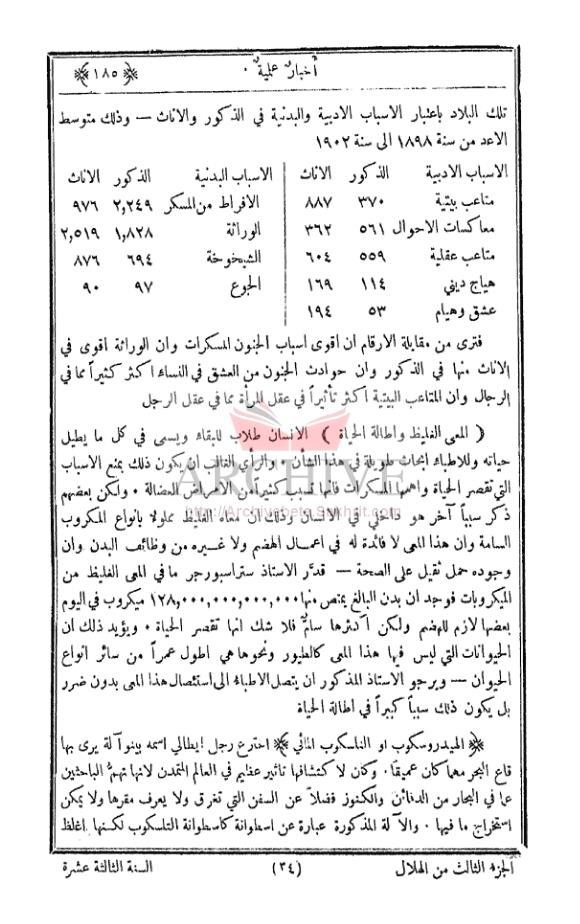 أخبار علمية ٠ ﴿ ١٨٥ ﴾
تلك البلاد باعتبار الاسباب الادبية والبدنية في الذكور والاناث — وذلك متوسط
الاعد من سنة ١٨٩٨ الى سنة ١٩٠٢
الاسباب الادبية الذكور الاناث
متاعب بيتية ٣٧٠ ٨٨٧
معاكسات الاحوال ٥٦١ ٣٦٢
متاعب عقلية ٥٥٩ ٦٠٤
هياج ديني ١١٤ ١٦٩
عشق وهيام ٥٣ ١٩٤
الاسباب البدنية الذكور الاناث
الافراط من المسكر ٢,٢٤٩ ٩٧٦
الوراثة ١,٨٢٨ ٢,٥١٩
الشيخوخة ٦٩٤ ٨٧٦
الجوع ٩٧ ٩٠
فترى من مقابلة الارقام ان اقوى اسباب الجنون المسكرات وان الوراثة اقوى في
الاناث منها في الذكور وان حوادث الجنون من العشق في النساء اكثر كثيراً مما في
الرجال وان المتاعب البيتية اكثر تأثيراً في عقل المرأة مما في عقل الرجل
﴿ المعى الغليظ واطالة الحياة ﴾ الانسان طلاب للبقاء ويسعى في كل ما يطيل
حياته وللاطباء ابحاث طويلة في هذا الشأن والرأي الغالب ان يكون ذلك بمنع الاسباب
التي تقصر الحياة واهمها المسكرات فانها تسبب كثيراً من الامراض العضالة ٠ ولكن بعضهم
ذكر سبباً آخر هو داخلي في الانسان وذلك ان معاه الغليظ مملوء بانواع المكروب
السامة وان هذا المعى لا فائدة له في اعمال الهضم ولا غيره من وظائف البدن وان
وجوده حمل ثقيل على الصحة — قدَّر الاستاذ ستراسبورجر ما في المعى الغليظ من
الميكروبات فوجد ان بدن البالغ يمتص منها ١٢٨,٠٠٠,٠٠٠,٠٠٠,٠٠٠ ميكروب في اليوم
بعضها لازم للهضم ولكن اكثرها سامٌّ فلا شك انها تقصر الحياة ٠ ويؤيد ذلك ان
الحيوانات التي ليس فيها هذا المعى كالطيور ونحوها هي اطول عمراً من سائر انواع
الحيوان — ويرجو الاستاذ المذكور ان يتصل الاطباء الى استئصال هذا المعى بدون ضرر
بل يكون ذلك سبباً كبيراً في اطالة الحياة
﴿ الهيدروسكوب او التلسكوب المائي ﴾ اخترع رجل ايطالي اسمه بينو آلة يرى بها
قاع البحر مهما كان عميقاً ٠ وكان لاكتشافها تأثير عظيم في العالم المتمدن لانها تهمُّ الباحثين
عما في البحار من الدفائن والكنوز فضلاً عن السفن التي تغرق ولا يعرف مقرها ولا يمكن
استخراج ما فيها ٠ والآلة المذكورة عبارة عن اسطوانة كاسطوانة التلسكوب لكنها اغلظ
الجزء الثالث من الهلال (٣٤) السنة الثالثة عشرة
ARCHIVE
http://Archivebeta.Sakhrit.com